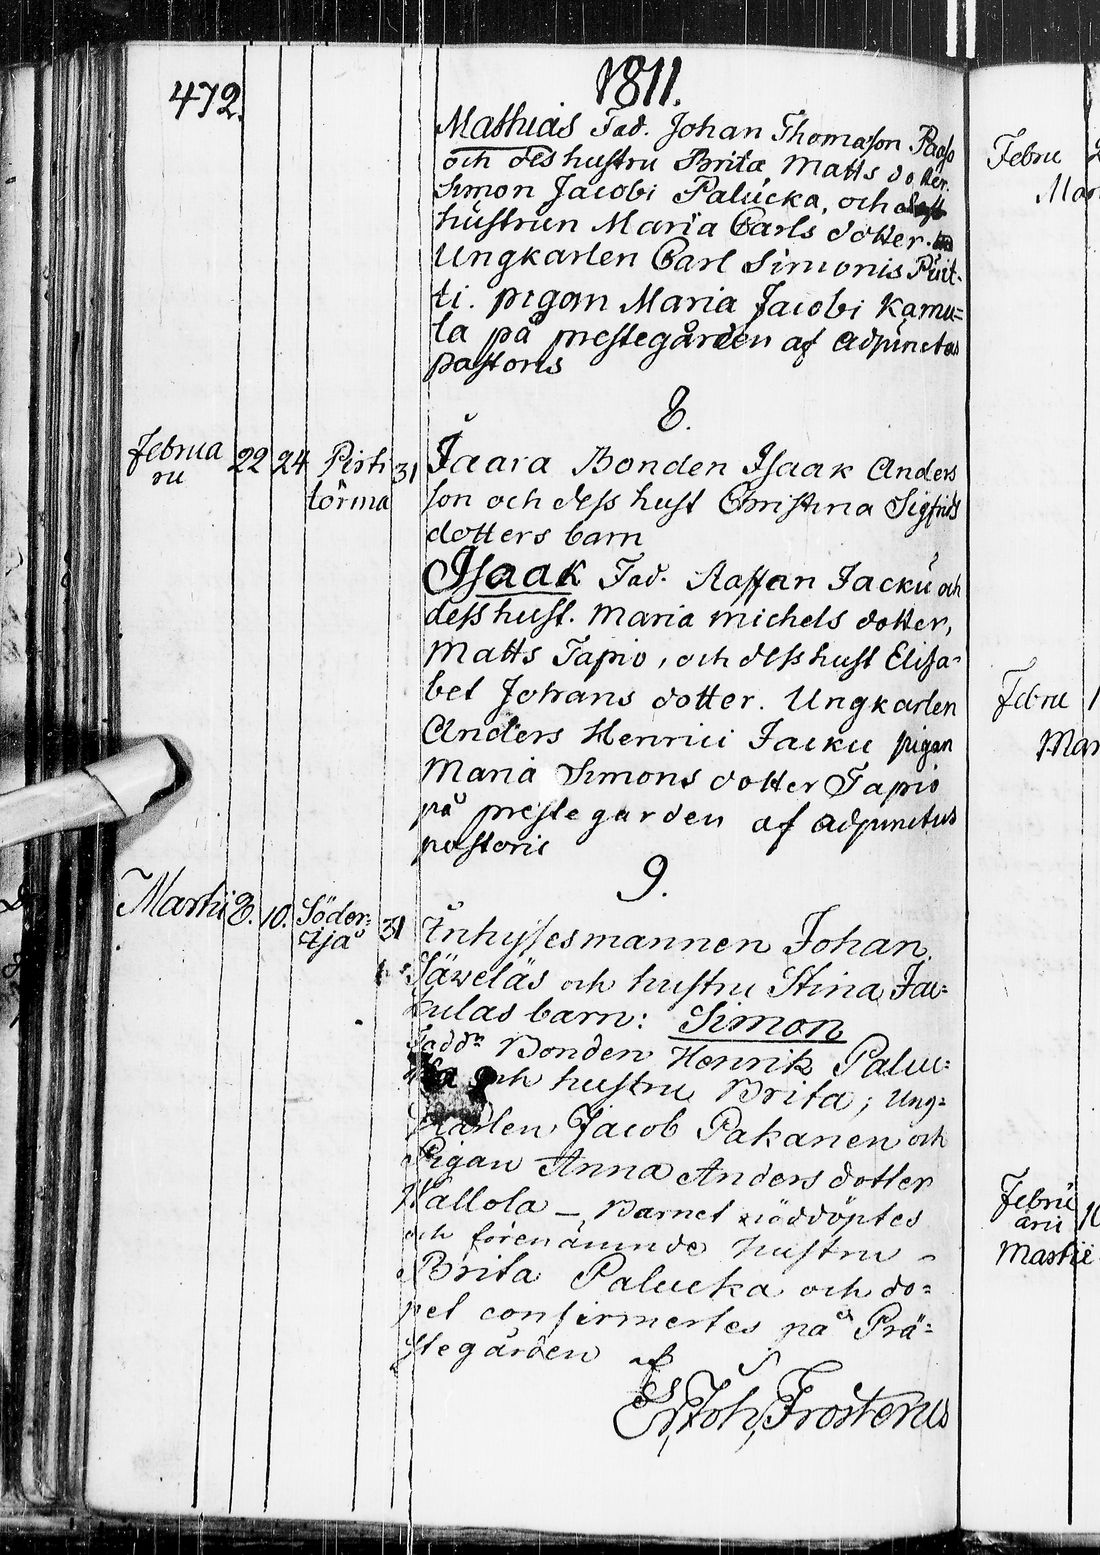 472.
1811.
Mathias Fad. Johan Thomasson Paaso
och dess hustru Brita Matts dotter.
Simon Jacobi Palucka, och
hustrun Maria Carls dotter.
Ungkarlen Carl Simonis Pirit-
ti. pigan Maria Jacobi Kamu=
la på prestegården af adjunctus
pastoris
8.
Februa 22 24 Pirti 31 Jaara Bonden Isaak Anders
ru törmä son och dess hust Christina Sigfrids
dotters barn
Isaak Fad. Staffan Jacku och
dess hust. Maria Michels dotter,
Matts Tapio, och dess hust Elisa-
bet Johans dotter. Ungkarlen
Anders Henrici Jacku pigan
Maria Simons dotter Tapio
på preste garden af adjunctus
pastoris
9.
Martii 8. 10. Söder= 31 Inhysesmannen Johan
Säveläs och hustru Stina Jac=
kulas barn: Simon
Fadd: Bonden Henrik Paluc=
ka och hustru Brita; Ung=
karlen Jacob Pakanen och
Pigan Anna Anders dotter
Wallola – Barnet nöddöptes
och förenämnde hustru
Brita Palucka och do=
pet confirmertes på Prä=
stegården af
Er, Joh, Frosterus
Febru
Mar
Febru 1
Mar
Febru
arii 10
Martii